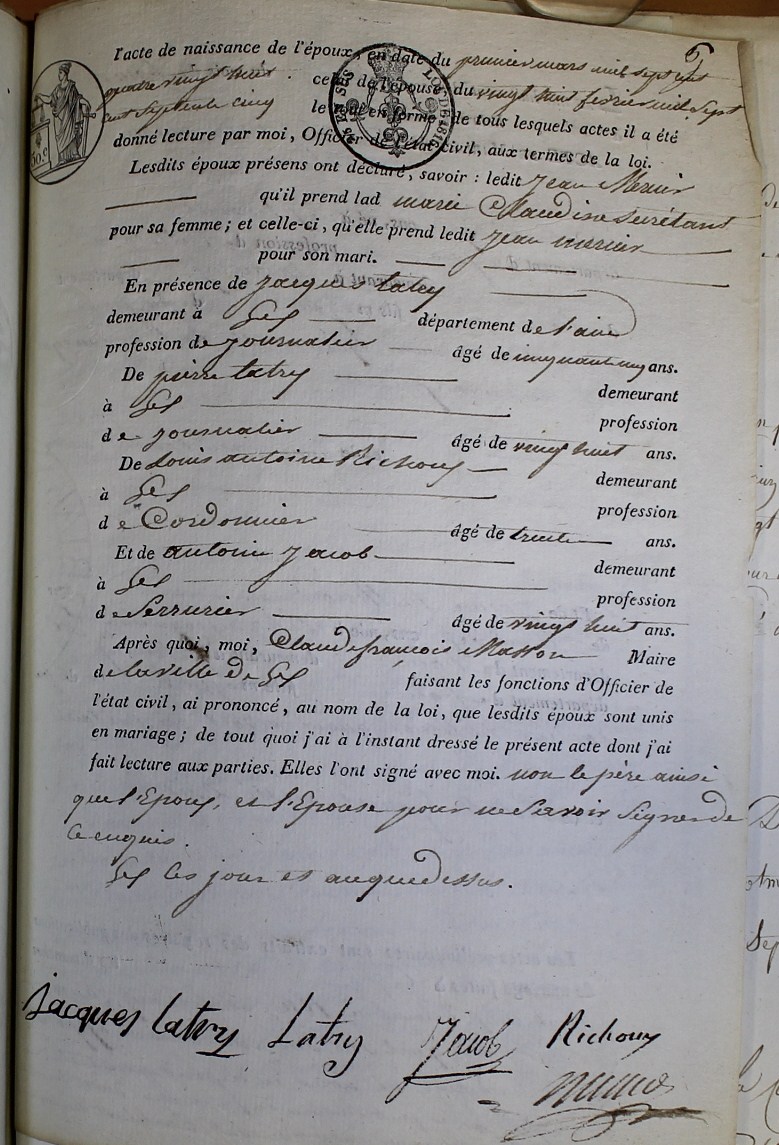 5
l'acte de naissance de l'époux, en date du premier mars mil sept cent
quatre vingt huit. celui de l'épouse, du vingt huit fevrier mil sept
cent septente cinq le tout en forme de tous lesquels actes il a été
donné lecture par moi, Officier de l'état civil, aux termes de la loi.
Lesdits époux présens ont déclaré, savoir : ledit Jean Mercier
qu'il prend lad marie Claudine Seurétant
pour sa femme ; et celle-ci, qu'elle prend ledit Jean mercier
pour son mari.
En présence de Jacques Latry
demeurant à Gex département de l'ain
profession de Journalier âgé de cinquante cinq ans.
De pierre Latry demeurant
à Gex profession
de Journalier âgé de vingt huit ans.
De Louis antoine Richouy demeurant
à Gex profession
de Cordonnier âgé de trente ans.
Et de antoine Jacob demeurant
à Gex profession
de Serrurier âgé de vingt huit ans.
Après quoi, moi, Claude françois Masson Maire
de la ville de Gex faisant les fonctions d'Officier de
l'état civil, ai prononcé, au nom de la loi, que lesdits époux sont unis
en mariage ; de tout quoi j'ai à l'instant dressé le présent acte dont j'ai
fait lecture aux parties. Elles l'ont signé avec moi. non le père ainsi
que l'Epoux, et l'Epouse pour ne Savoir Signer de
ce enquis.
Gex les jour et an que dessus.
Jacques Latry Latry Jacob Richouy